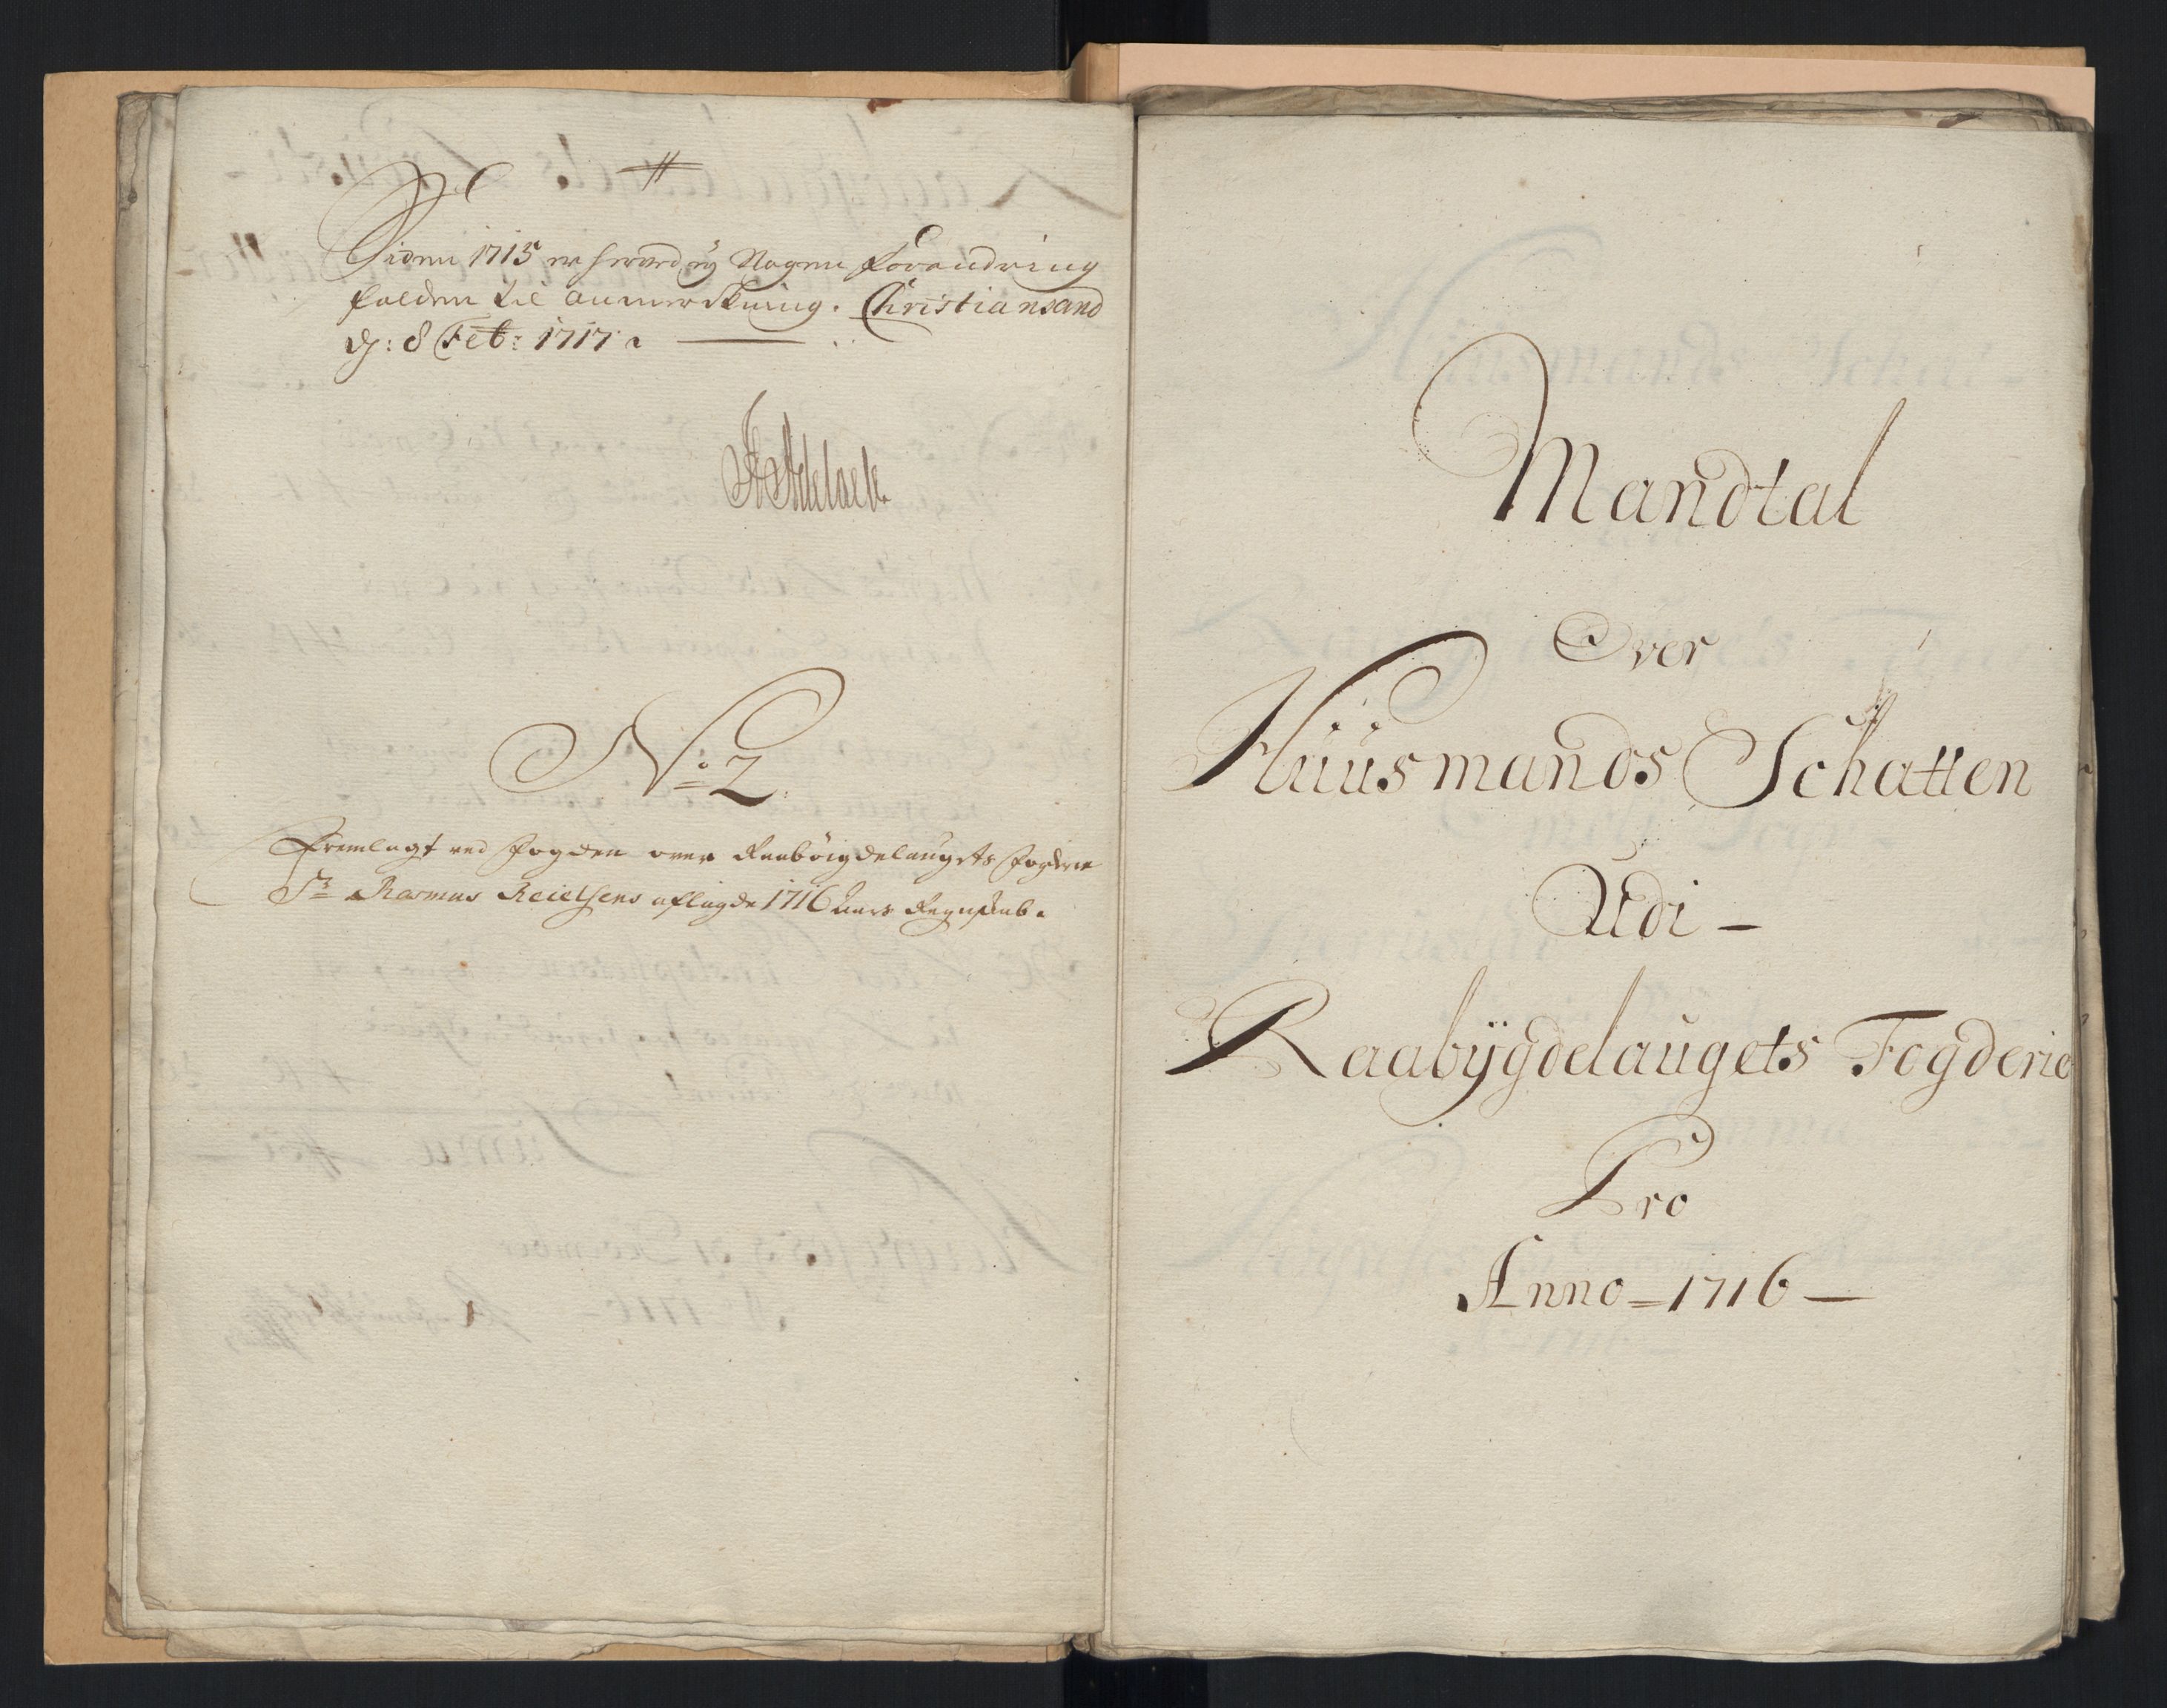 Siden 1715 er herved ej Nogen forandring
falden til anmerkning. Christiansand
d: 8 Feb: 1717.
N:o 2
Fremlagt ved fogden over Raabøigdelaugets fogderie
Sr Rasmus Reielsens aflagde 1716 aars Regnskab.
Mandtal
Over
Huusmands Schatten
Udi -
Raabÿgdelaugets Fogderie
Pro
Anno = 1716 -